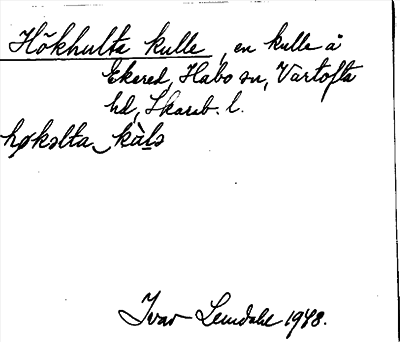 Hökhulta kulle, en kulle å
Ekered, Habo sn, Vartofta
hd, Skarab. l.
høkolta kàlo
Ivar Lundahl 1948.